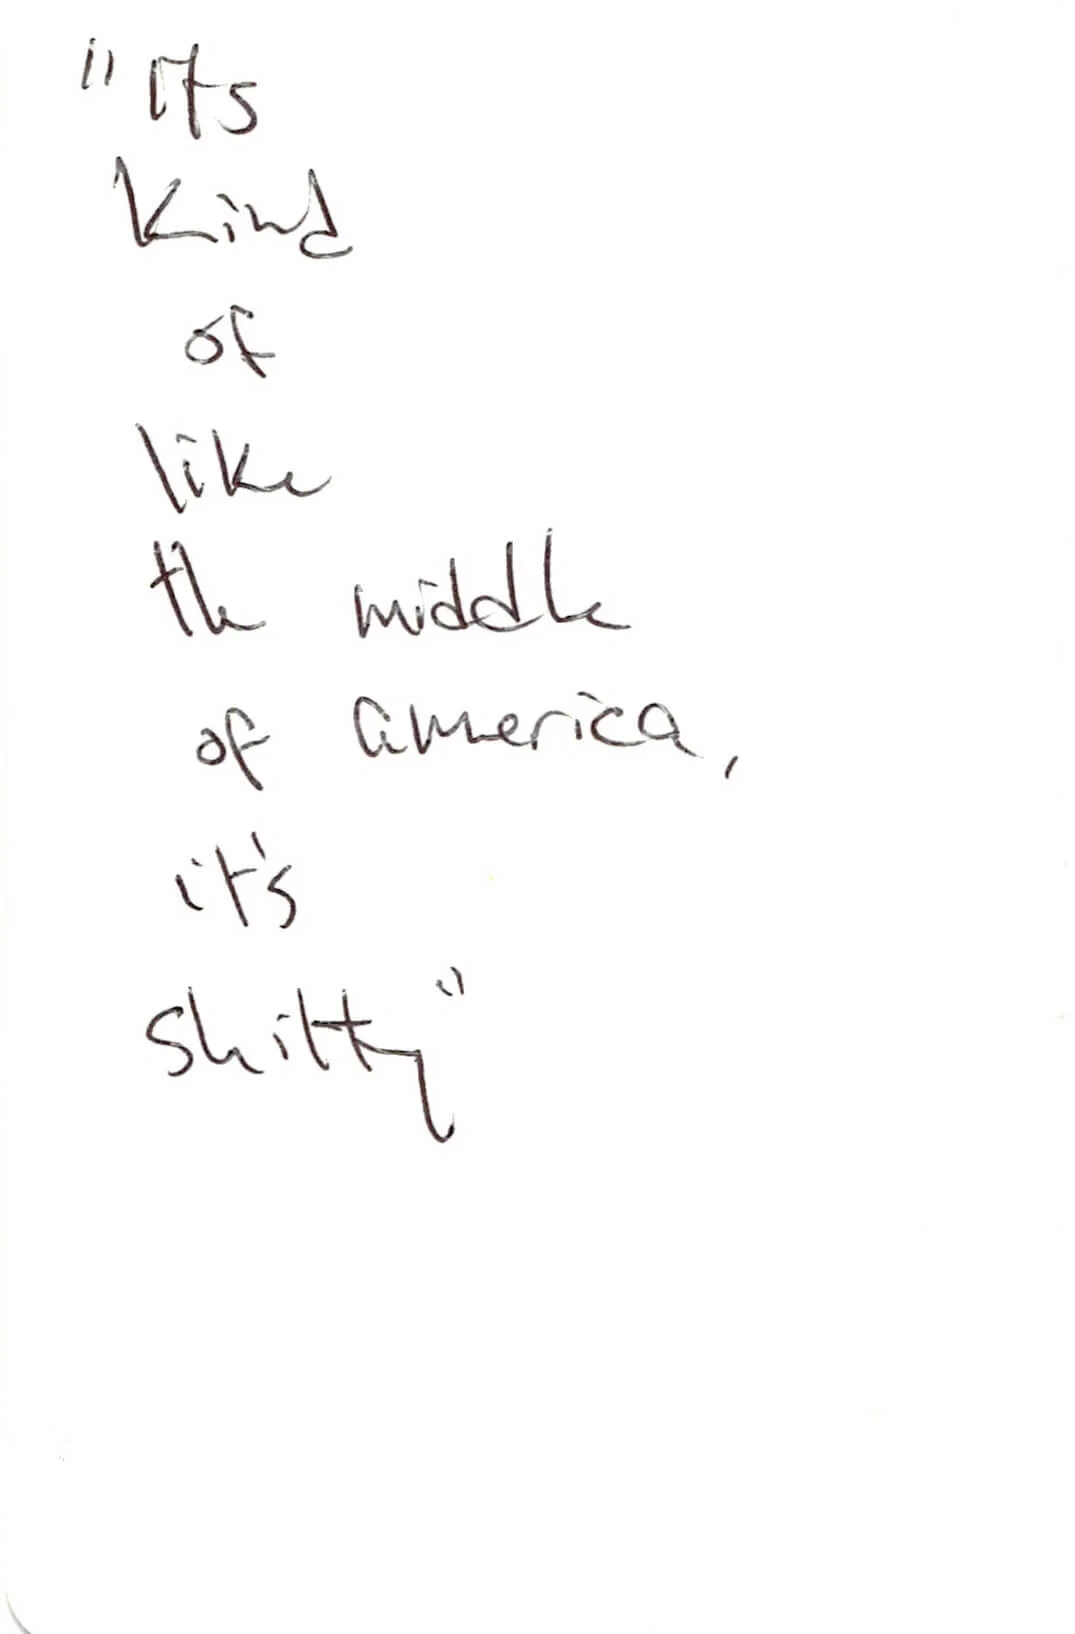 "Its
Kind
of
like
the middle
of america,
it's
shitty"